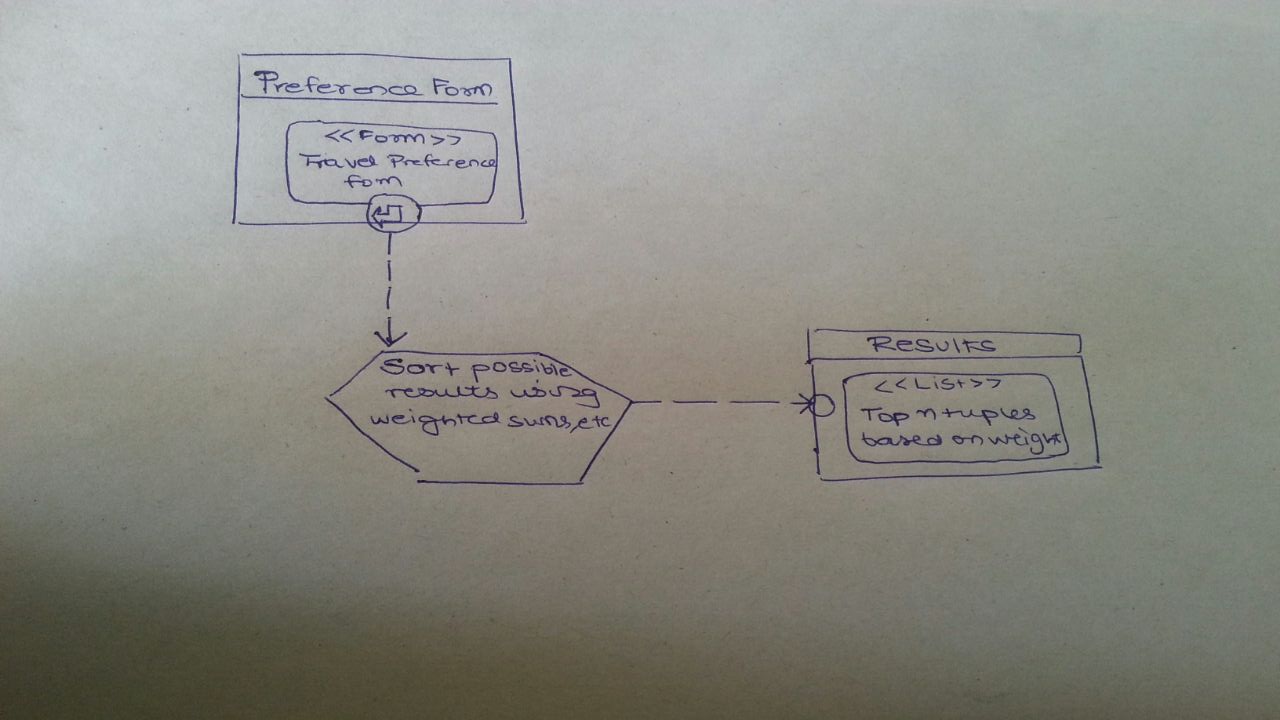 Preference Form
<<Form>>
Travel Preference
form
Sort possible
results using
weighted sums, etc
Results
<<List>>
Top n tuples
based on weight